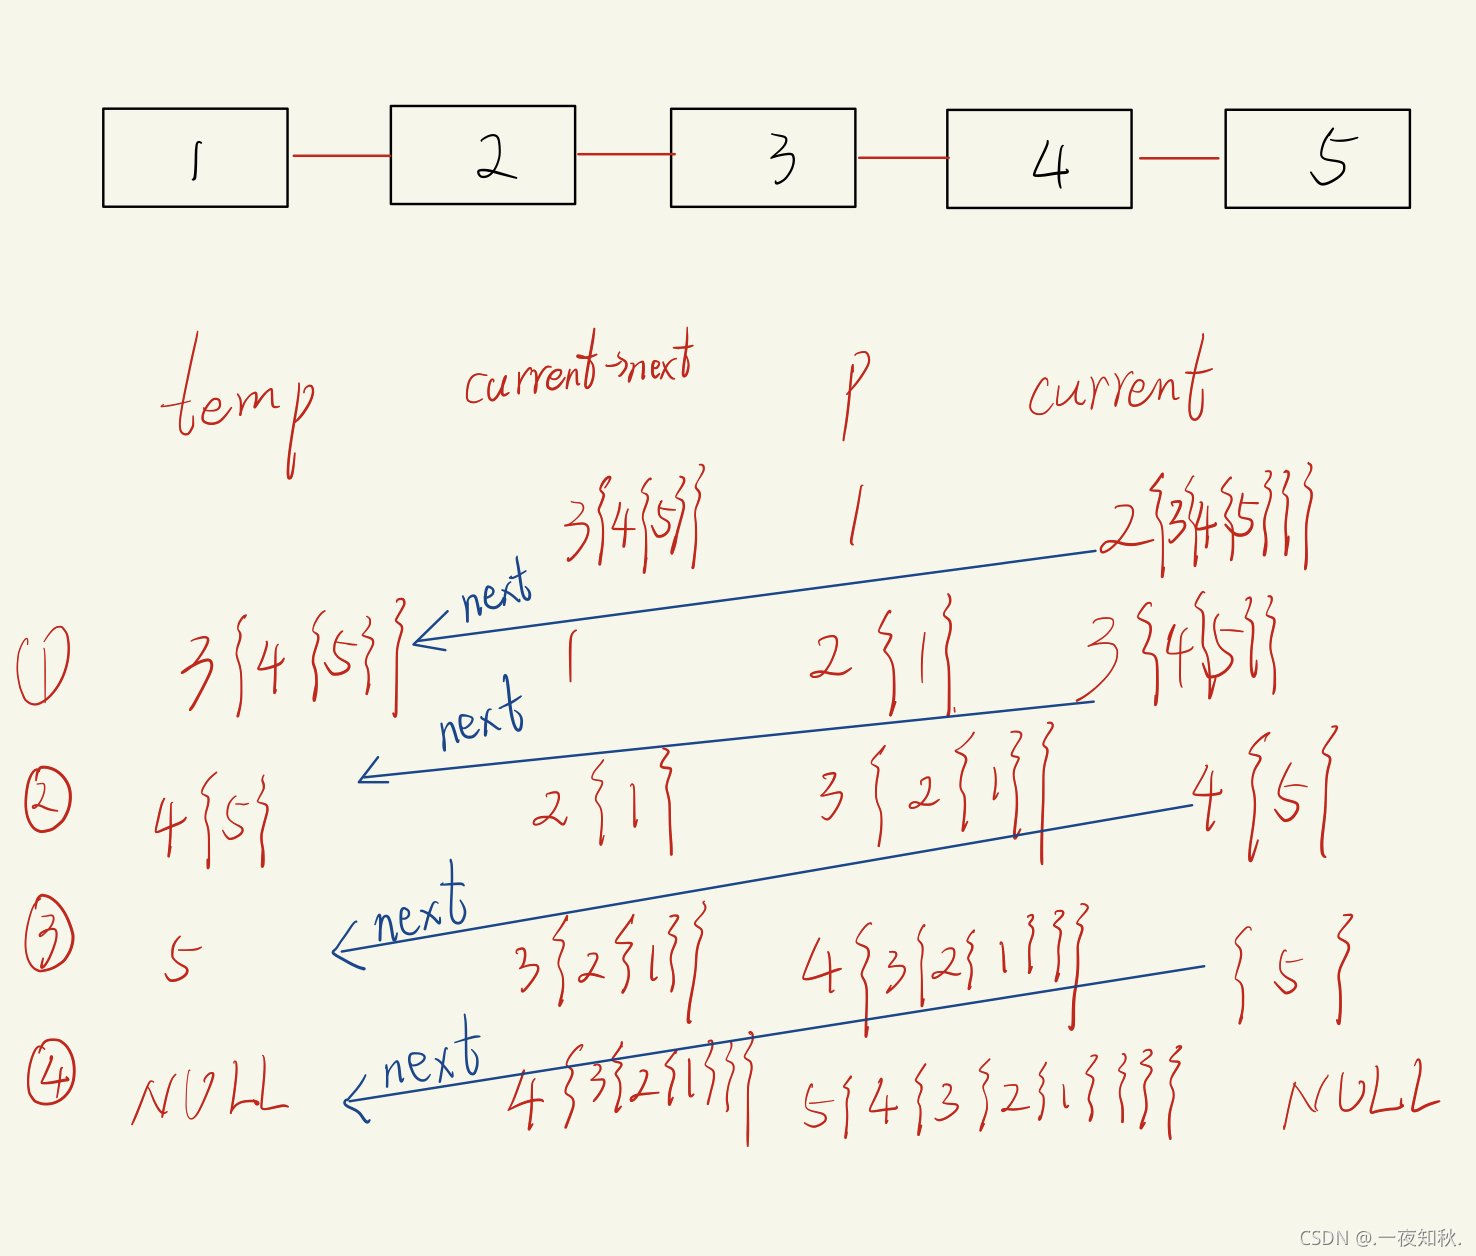 1 2 3 4 5
temp current→next p current
3{4{5}} 1 2{3{4{5}}}
next
① 3{4{5}} 1 2{1} 3{4{5}}
next
② 4{5} 2{1} 3{2{1}} 4{5}
next
③ 5 3{2{1}} 4{3{2{1}}} {5}
next
④ NULL 4{3{2{1}}} 5{4{3{2{1}}}} NULL
CSDN @.一夜知秋.